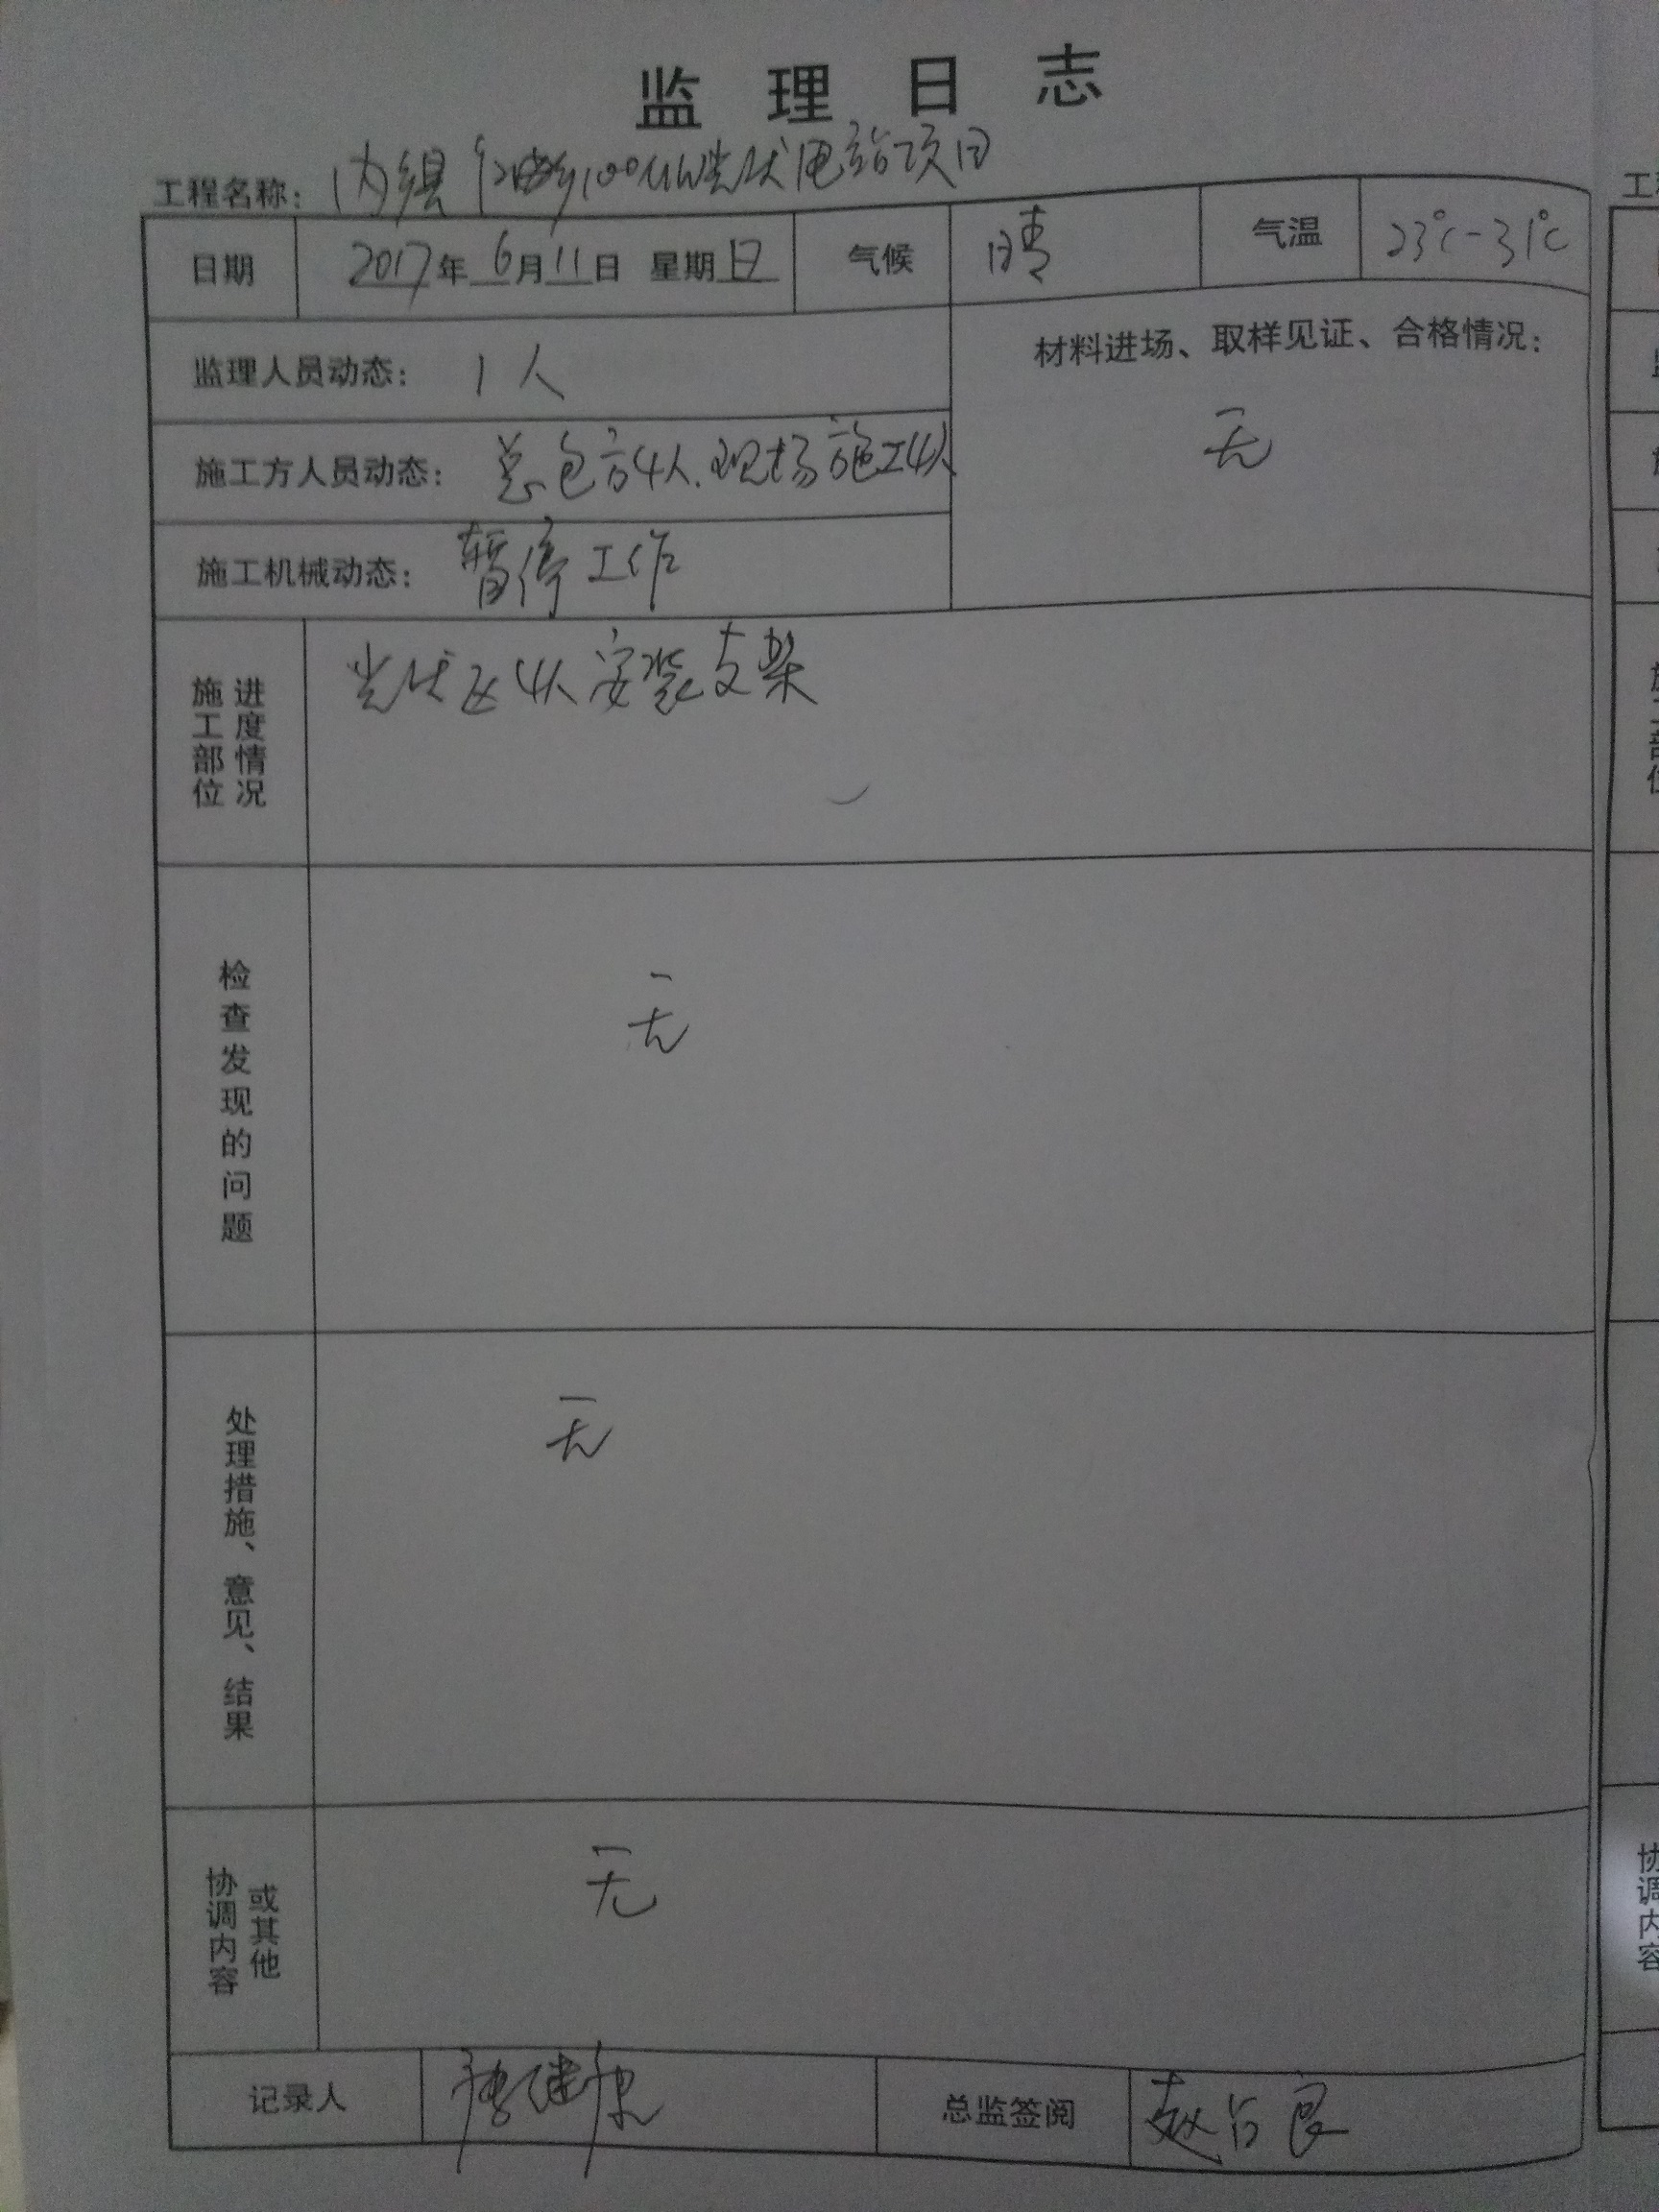 监理日志
工程名称：内 100MW光伏电站项目
日期 2017年6月11日 星期日 气候 晴 气温 23℃-31℃
监理人员动态： 1人
材料进场、取样见证、合格情况：
无
施工方人员动态： 总包方4人.现场施工4人
施工机械动态： 暂停工作
施工部位进度情况
光伏区4人安装支架
检查发现的问题
无
处理措施、意见、结果
无
协调内容或其他
无
记录人 总监签阅 赵占良
工程
协调内容